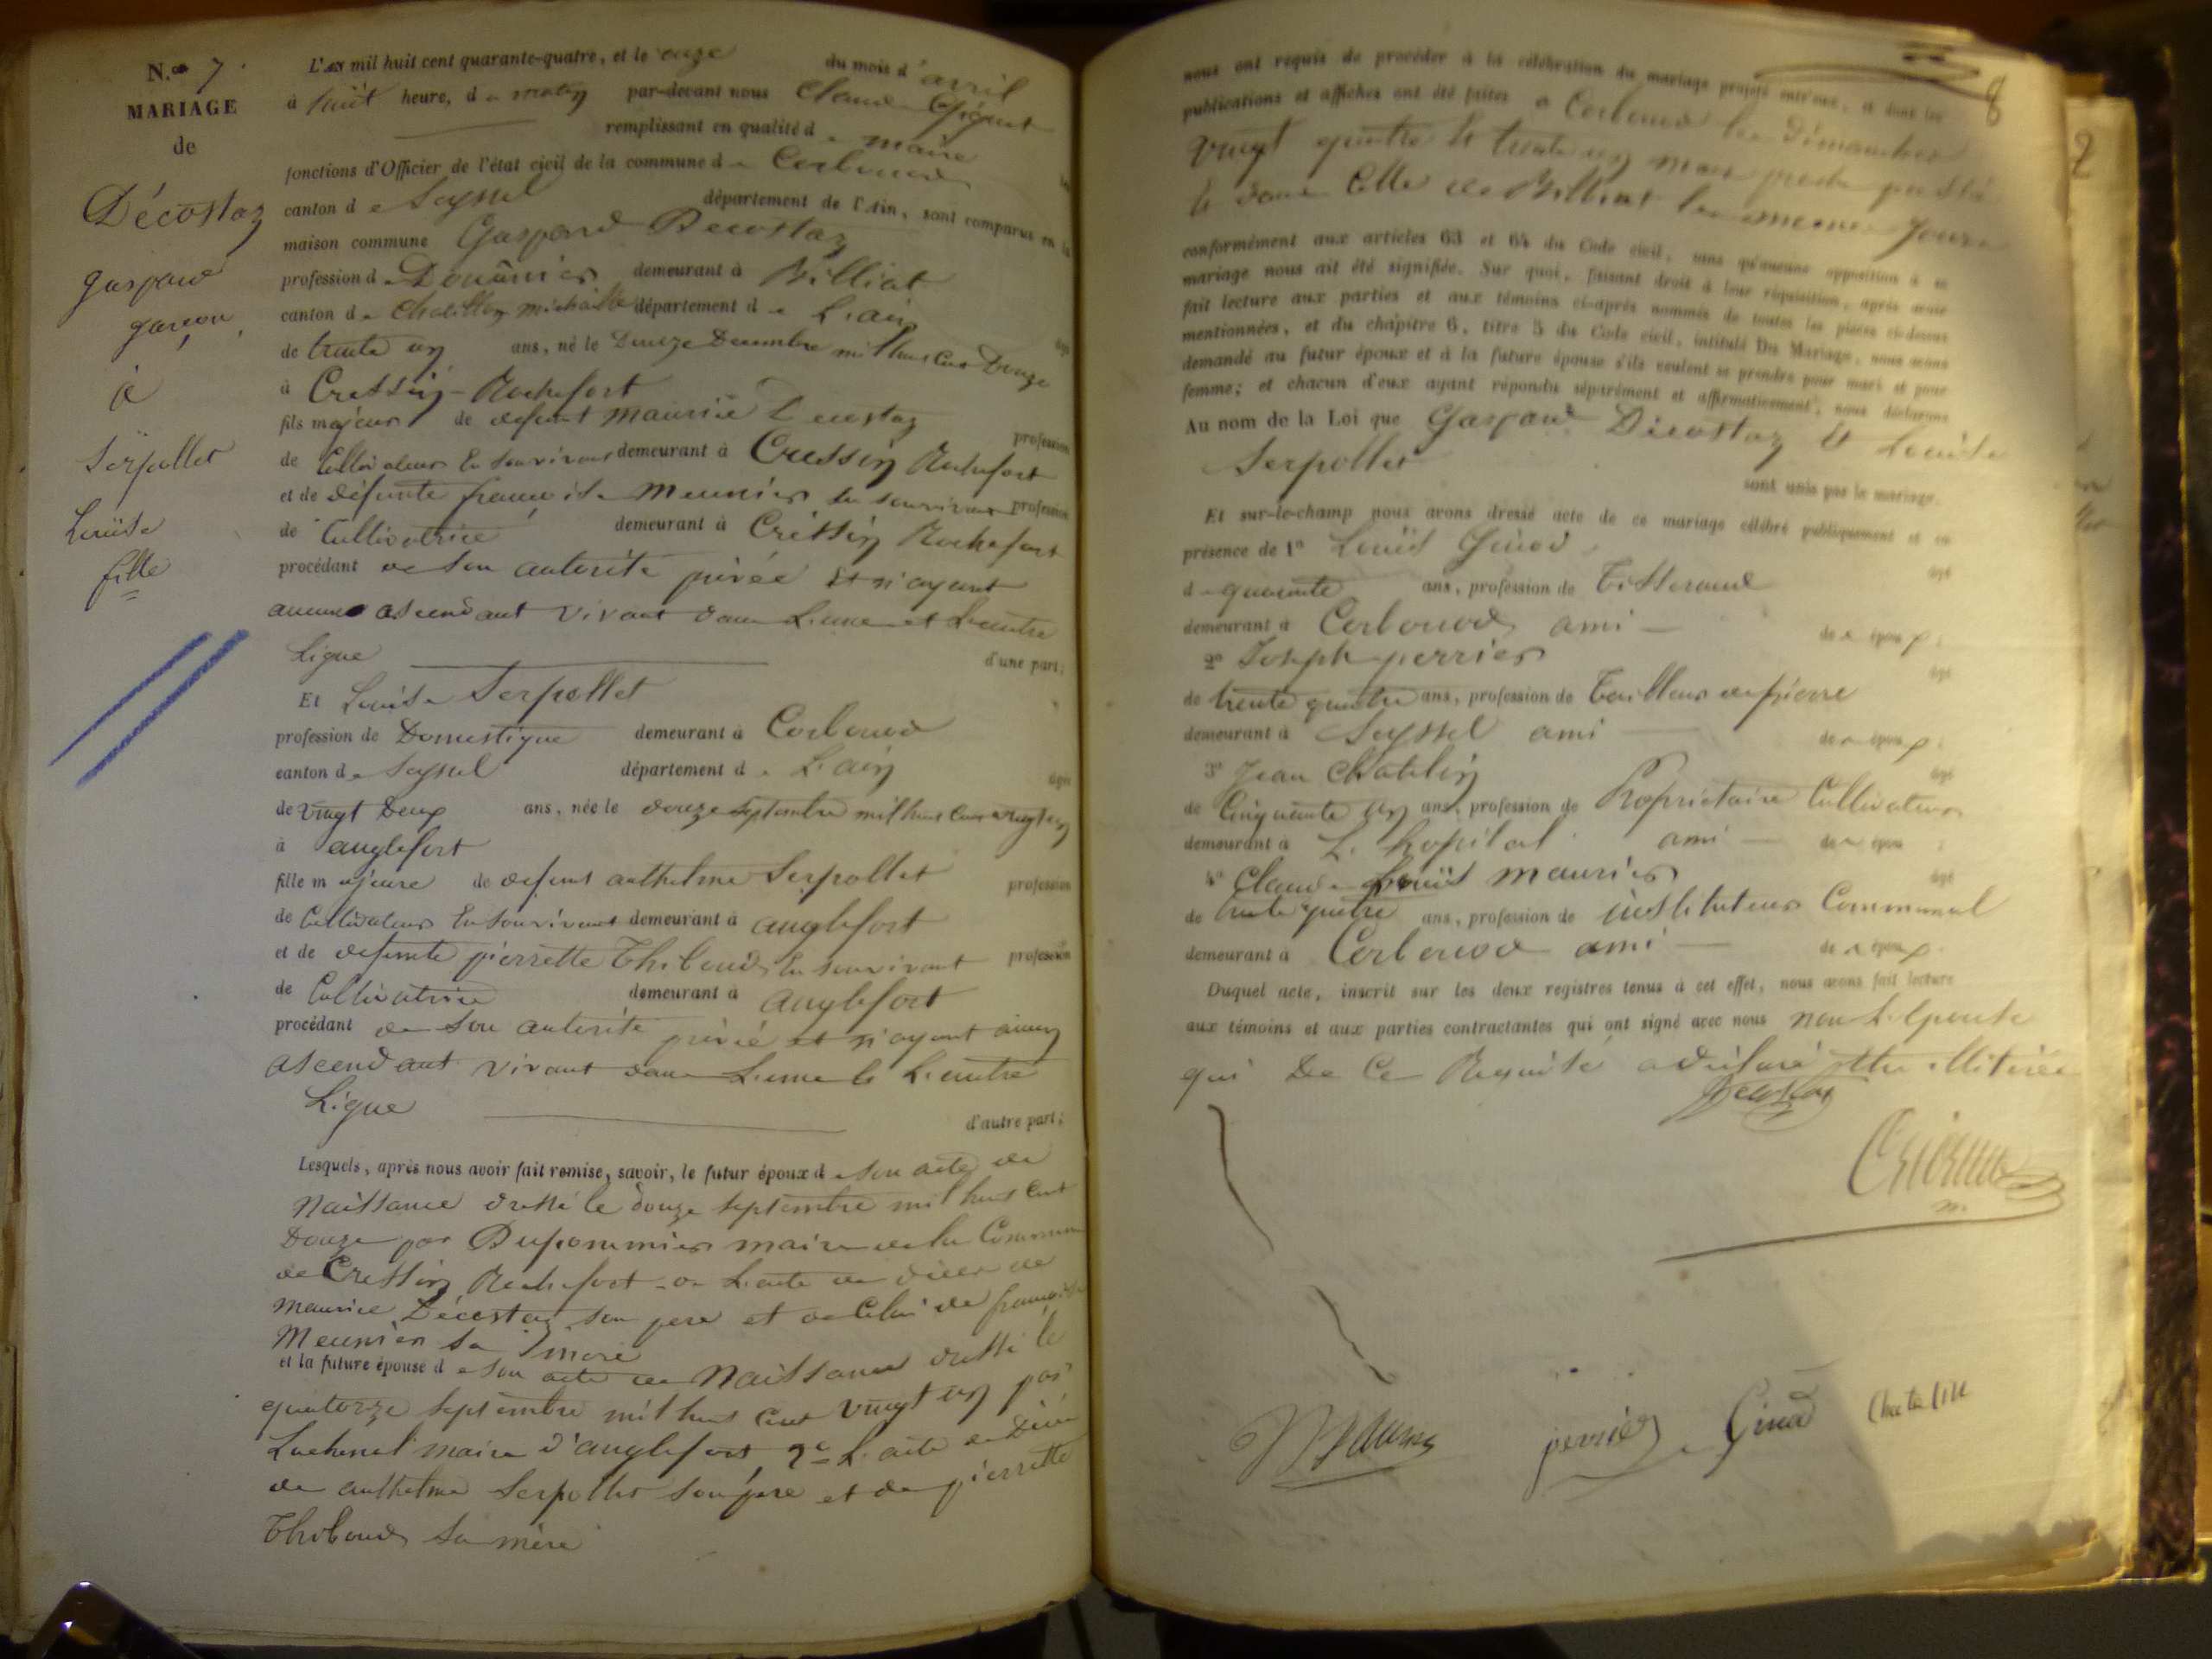 N.º 7.
MARIAGE
de
Décostaz
gaspard
garçon
à
Serpollet
Louise
fille
L'AN mil huit cent quarante-quatre, et le onze du mois d'avril
à huit heure, d u matin par-devant nous Claude
remplissant en qualité d e maire
fonctions d'Officier de l'état civil de la commune d e Corbonod
canton d e Seyssel département de l'Ain, sont comparus en la
maison commune Gaspard Decostaz
profession d e Douânier demeurant à Billiat
canton d e Chatillon michaille département d e L'ain
de trente un ans, né le Douze Decembre mil huit cent Douze
à Cressin-Rochefort
fils majeur de defunt maurice Decostaz profession
de Cultivateur En son vivant demeurant à Cressin Rochefort
et de défunte françoise meunier en son vivant profession
de Cultivatrice demeurant à Cressin Rochefort
procédant de son autorité privée Et n'ayant
aucun ascendant vivant dans L'une et L'autre
Ligne d'une part;
Et Louise Serpollet
profession de Domestique demeurant à Corbonod
canton d e Seyssel département d e L'ain âgée
de vingt Deux ans, née le douze septembre mil huit cent vingt un
à anglefort
fille majeure de defunt anthelme Serpollet profession
de Cultivateur En son vivant demeurant à anglefort
et de defunte pierrette Thiboud En son vivant profession
de Cultivatrice demeurant à anglefort
procédant de son autorité privée et n'ayant aucun
ascendant vivant dans L'une et L'autre
Ligne d'autre part;
Lesquels, après nous avoir fait remise, savoir, le futur époux d e son acte de
Naissance dressé le douze septembre mil huit cent
Douze par Dupommier maire de la Commune
de Cressin Rochefort de L'acte de décès de
maurice Décostaz son pere et de Celui de françoise
Meunier sa mère
et la future épouse d e son acte de Naissance dressé le
quatorze septembre mil huit cent vingt un par
Lachenal maire d'anglefort, 2º L'acte de Décès
de anthelme Serpollet son père et de pierrette
Thiboud sa mère
8
nous ont requis de procéder à la célébration du mariage projeté entr'eux, et dont les
publications et affiches ont été faites à Corbonod les Dimanches
vingt quatre et trente un mars
et dans Celle de Billiat les mêmes Jours
conformément aux articles 63 et 64 du Code civil, sans qu'aucune opposition à ce
mariage nous ait été signifiée. Sur quoi, faisant droit à leur réquisition, après avoir
fait lecture aux parties et aux témoins ci-après nommés de toutes les pièces ci-dessus
mentionnées, et du chapitre 6, titre 5 du Code civil, intitulé Du Mariage, nous avons
demandé au futur époux et à la future épouse s'ils veulent se prendre pour mari et pour
femme; et chacun d'eux ayant répondu séparément et affirmativement, nous déclarons
Au nom de la Loi que Gaspard Décostaz Et Louise
Serpollet
sont unis par le mariage.
Et sur-le-champ nous avons dressé acte de ce mariage célébré publiquement et en
présence de 1º Louis Ginod âgé
d e quarante ans, profession de Tisserand
demeurant à Corbonod ami de s époux;
2º Joseph perrier âgé
de trente quatre ans, profession de Tailleur de pierre
demeurant à Seyssel ami de s époux;
3º Jean Chatelin âgé
de Cinquante un ans, profession de Propriétaire Cultivateur
demeurant à L'hopital ami de s époux;
4º Claude Louis maurier âgé
de trente quatre ans, profession de instituteur Communal
demeurant à Corbonod ami de s époux.
Duquel acte, inscrit sur les deux registres tenus à cet effet, nous avons fait lecture
aux témoins et aux parties contractantes qui ont signé avec nous non L'épouse
qui De Ce Requise a déclaré être illitérée
Decostaz
perrier
Ginod
Chatelin